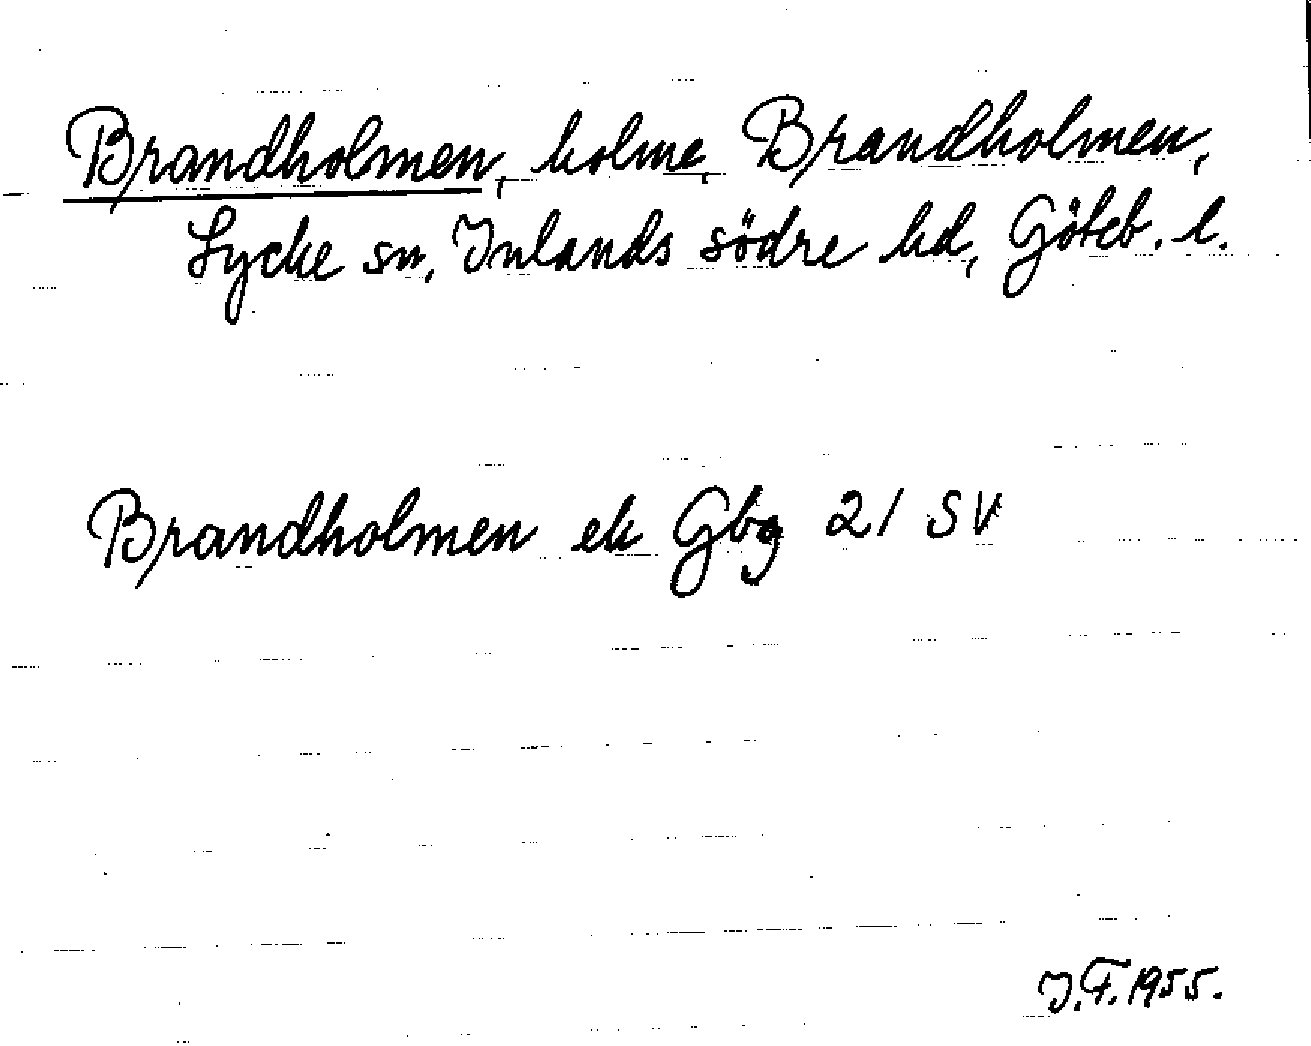 Brandholmen, holme, Brandholmen,
Lycke sn, Inlands södre hd, Göteb. l.
Brandholmen ek Gbg 21 SV
J.F. 1955.